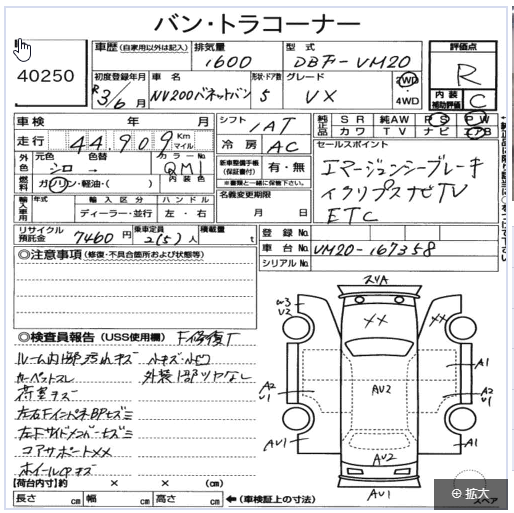 バン・トラコーナー
40250
車歴 (自家用以外は記入)
排気量 1600
型式 DBF-VM20
評価点 R
初度登録年月 R3/6月
車名 NV200バネットバン
形状・ドア数 5
グレード VX
2WD・4WD
内装補助評価 C
車検 年 月
シフト IAT
純正品 SR 純AW PS PW
カワ TV ナビ エアB
走行 44,909 Km マイル
冷房 AC
セールスポイント
エマージェンシーブレーキ
イクリプスナビTV
ETC
外色 元色 シロ → 色替
カラーNo. QM1
内装色
燃料 ガソリン・軽油・( )
新車整備手帳 (保証書付) 有・無
※書類と一緒に保管下さい。
輸入車用 年式 輸入区分 ハンドル
ディーラー・並行 左・右
名義変更期限 月 日
リサイクル預託金 7460円
乗車定員 2(5)人
積載量 t
登録No.
車台No. VM20-167358
シリアルNo.
◎注意事項 (修復・不具合箇所および状態等)
◎検査員報告 (USS使用欄) F修復T
ルーム内部汚れキズ 小キズ・小凹
カーペットスレ 外装上部ツヤなし
荷室キズ
左右FインナーBPヒズミ
左Fサイドメンバーヒズミ
コアサポートXX
ホイールCPキズ
XVA
U3
U2
XX
XX
A1
A2
U1
AU2
A2
U1
AU1
A1
AU2
AU1
スペア
【荷台内寸】約 × × (cm)
長さ cm 幅 cm 高さ cm ←(車検証上の寸法)
拡大